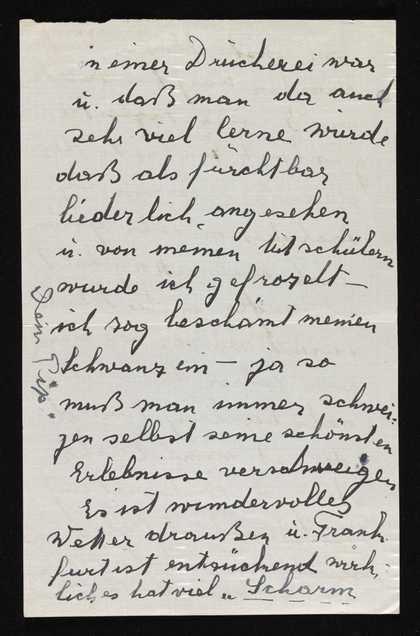 in einer Drückerei war
u. daß man da auch
sehr viel lerne wurde
daß als fürchtbar
liederlich, angesehen
u. von meinen Mitschülern
wurde ich gefrozelt –
ich zog beschämt meinen
Schwanz ein – ja so
muß man immer schwei-
gen selbst seine schönsten
Erlebnisse verschweigen
Es ist wundervolles
Wetter draußen u. Frank-
furt ist entzückend wirk-
lich es hat viel „Scharm
Dein "Pips"